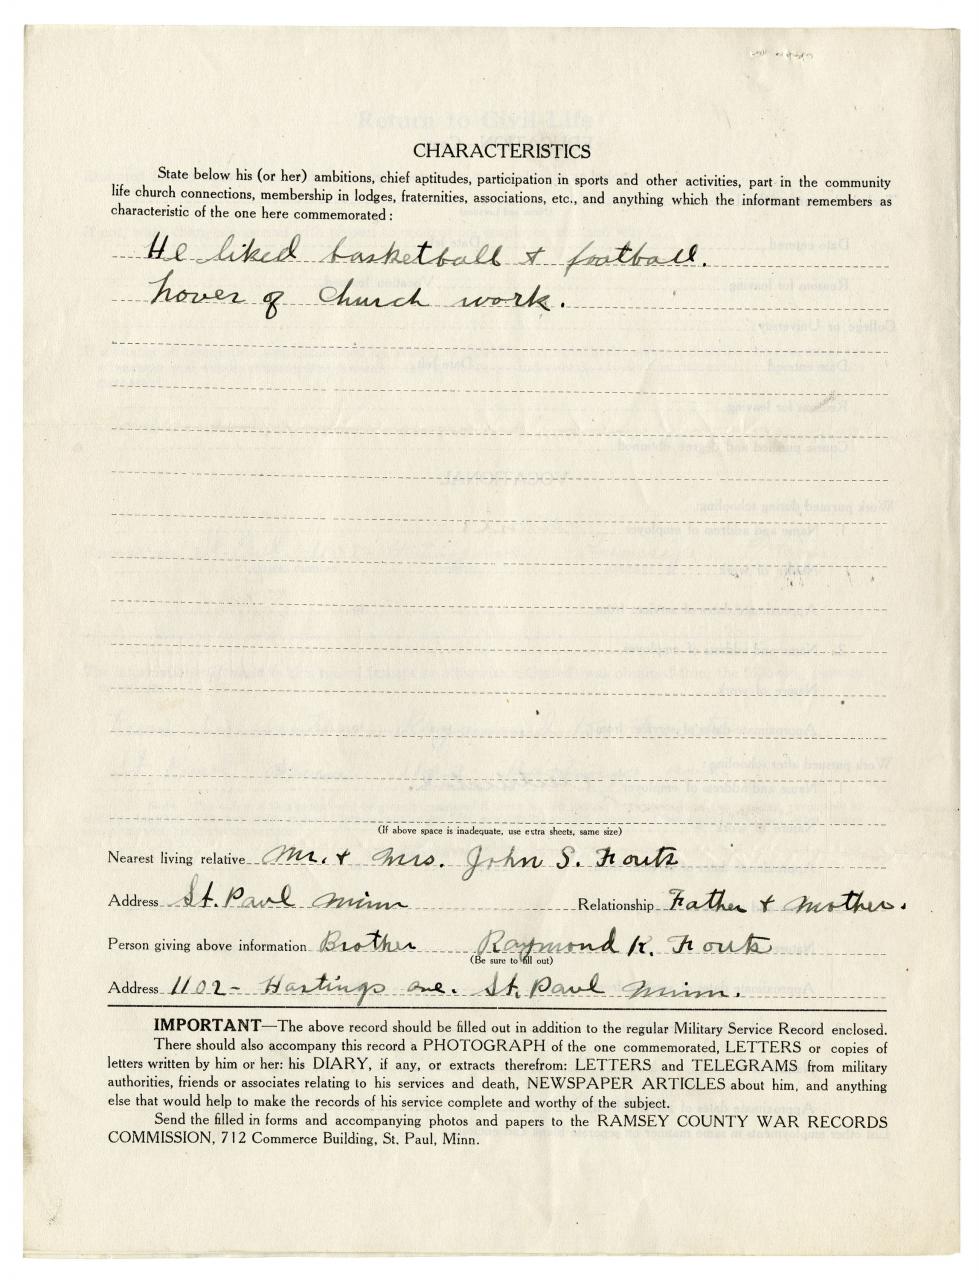 CHARACTERISTICS
State below his (or her) ambitions, chief aptitudes, participation in sports and other activities, part in the community
life church connections, membership in lodges, fraternities, associations, etc., and anything which the informant remembers as
characteristic of the one here commemorated:
He liked basketball & football.
Lover of Church work.
(If above space is inadequate, use extra sheets, same size)
Nearest living relative Mr. & Mrs. John S. Fouts
Address St. Paul Minn Relationship Father & Mother.
Person giving above information Brother Raymond K. Fouts
(Be sure to fill out)
Address 1102- Hastings ave. St. Paul Minn.
IMPORTANT—The above record should be filled out in addition to the regular Military Service Record enclosed.
There should also accompany this record a PHOTOGRAPH of the one commemorated, LETTERS or copies of
letters written by him or her: his DIARY, if any, or extracts therefrom: LETTERS and TELEGRAMS from military
authorities, friends or associates relating to his services and death, NEWSPAPER ARTICLES about him, and anything
else that would help to make the records of his service complete and worthy of the subject.
Send the filled in forms and accompanying photos and papers to the RAMSEY COUNTY WAR RECORDS
COMMISSION, 712 Commerce Building, St. Paul, Minn.